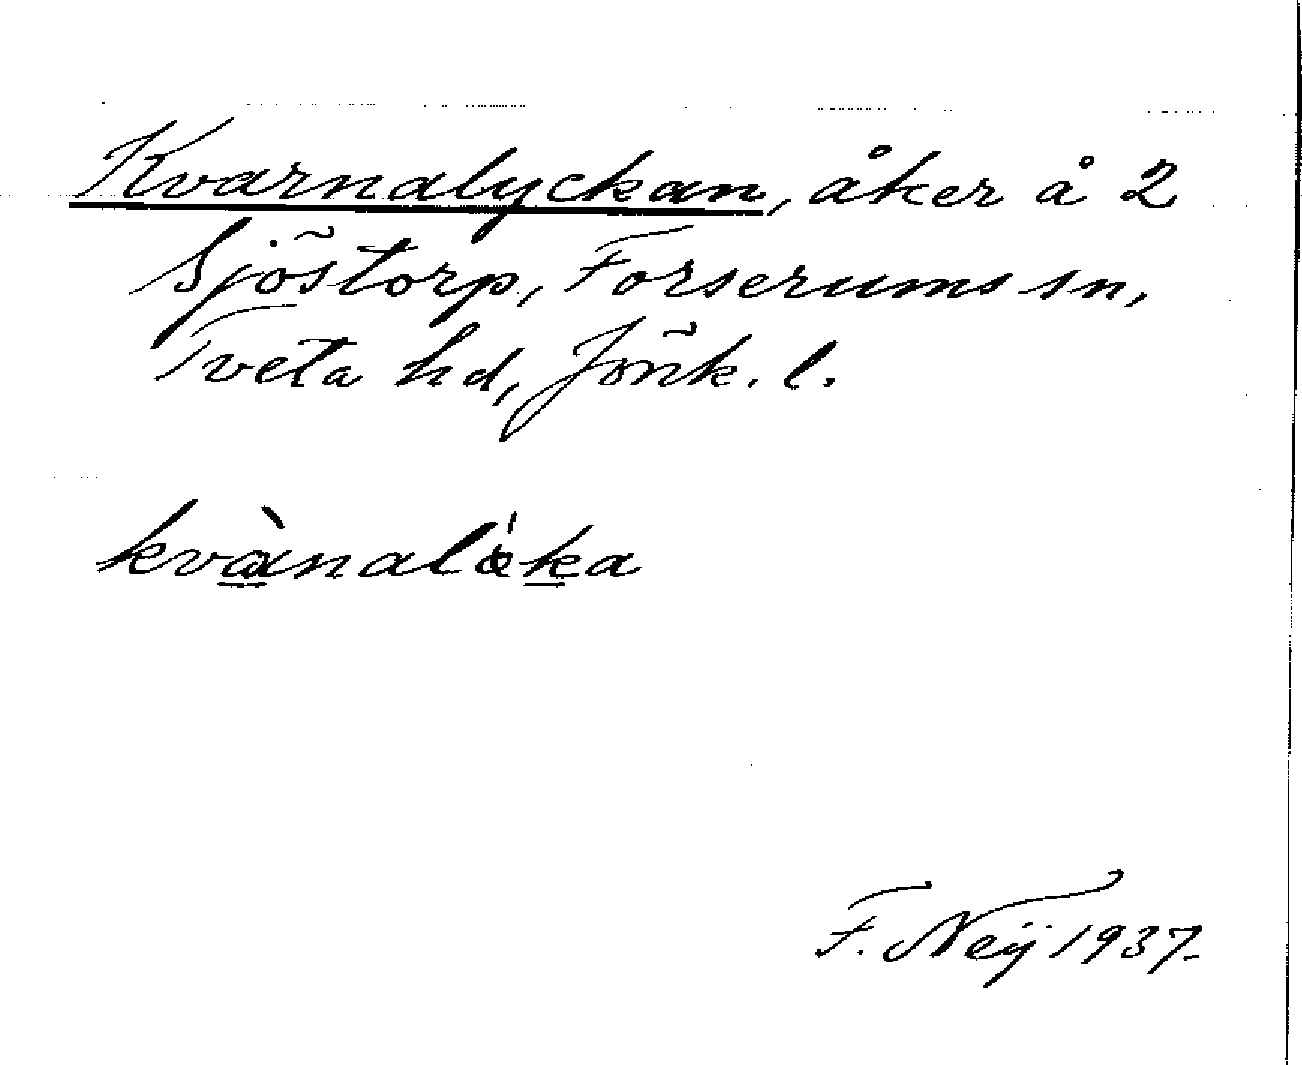 Kvarnalyckan, åker å 2
Sjöstorp, Forserums sn,
Tveta hd, Jönk. l.
kvànalǿka
F. Neij 1937.